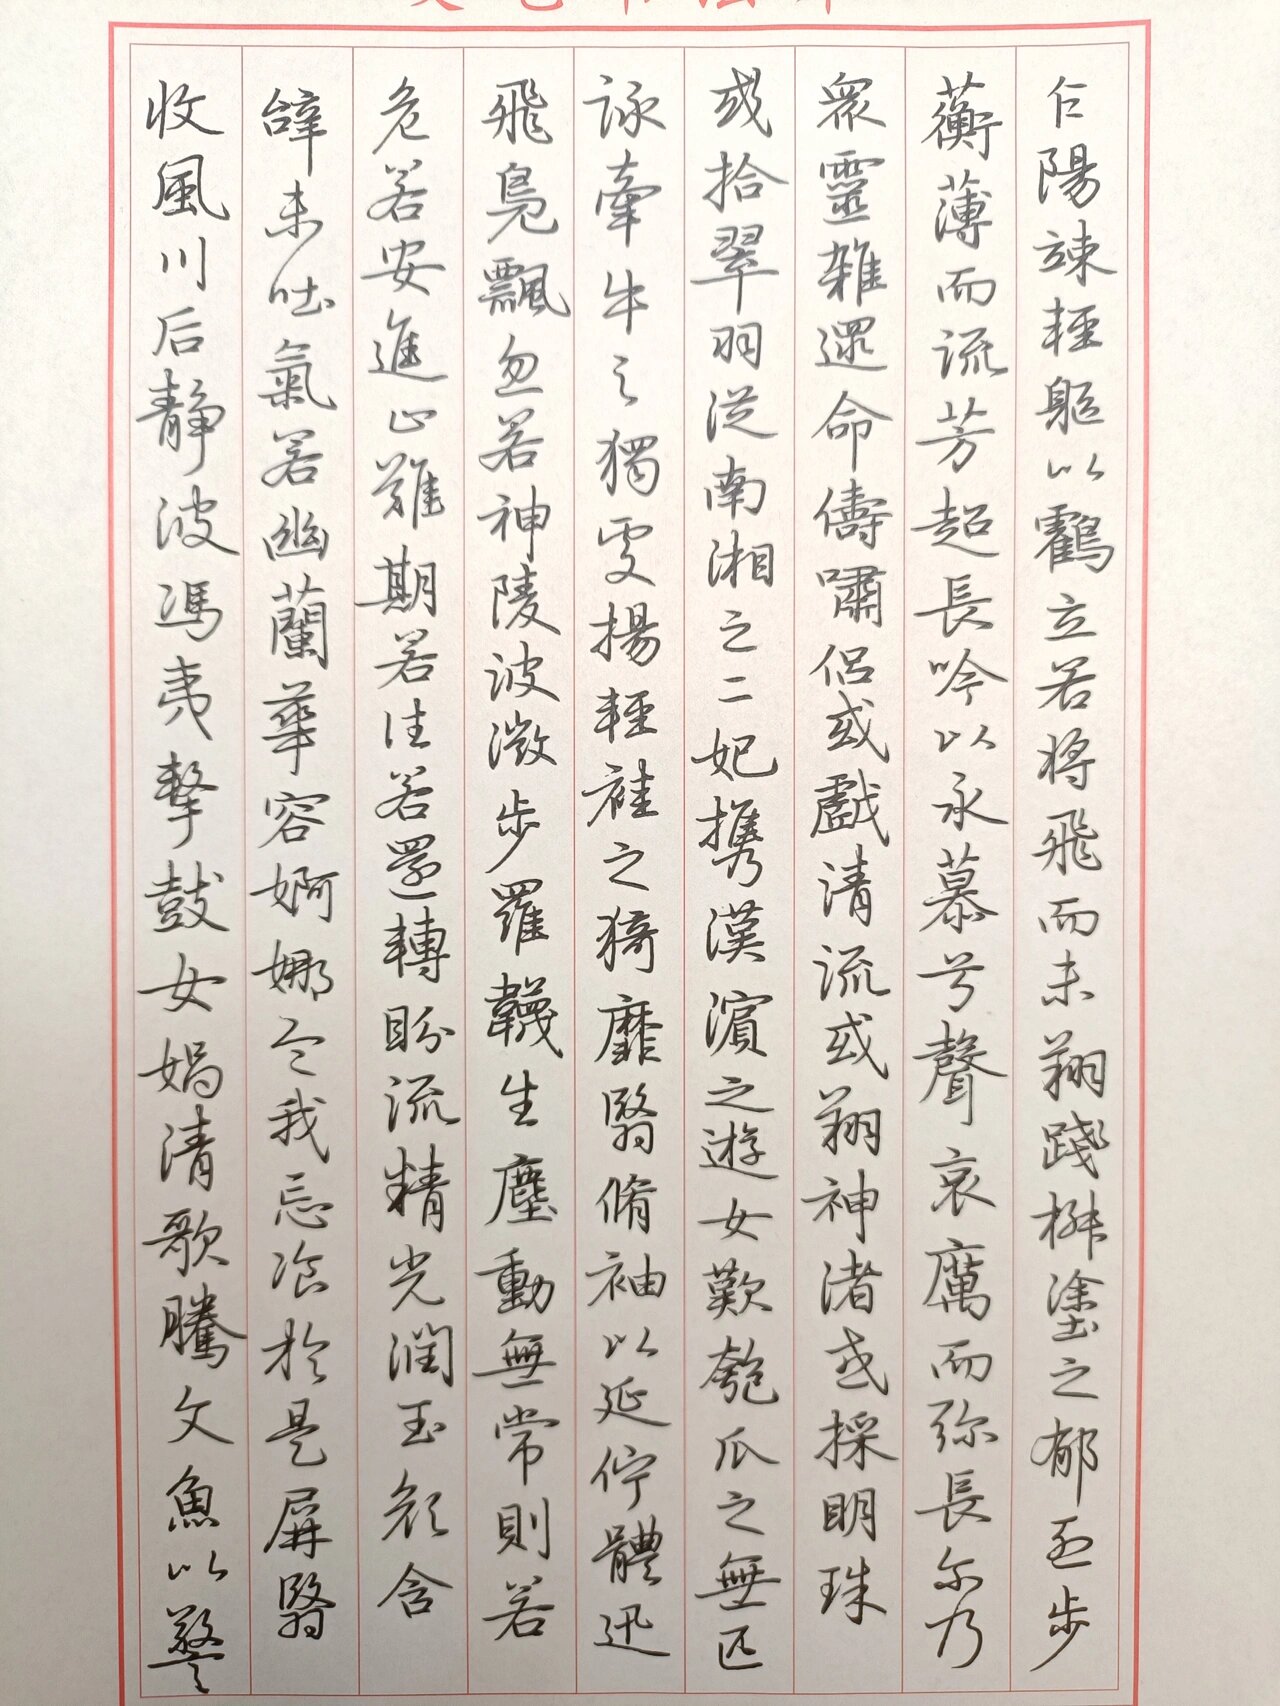 乍陽竦輕軀以鶴立若將飛而未翔踐椒塗之郁烈步
蘅薄而流芳超長吟以永慕兮聲哀厲而彌長爾乃
眾靈雜遝命儔嘯侶或戲清流或翔神渚或採明珠
或拾翠羽從南湘之二妃攜漢濱之遊女歎匏瓜之無匹
詠牽牛之獨處揚輕袿之猗靡翳脩袖以延佇體迅
飛鳧飄忽若神陵波微步羅韈生塵動無常則若
危若安進止難期若往若還轉盼流精光潤玉顏含
辭未吐氣若幽蘭華容婀娜令我忘飡於是屏翳
收風川后靜波馮夷擊鼓女媧清歌騰文魚以警